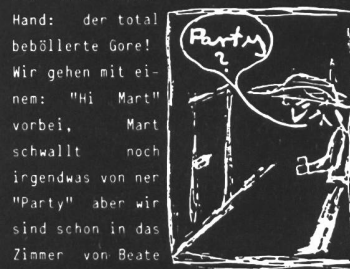 Hand: der total
beböllerte Gore!
Wir gehen mit ei-
nem: "Hi Mart"
vorbei, Mart
schwallt noch
irgendwas von ner
"Party" aber wir
sind schon in das
Zimmer von Beate
Party
?